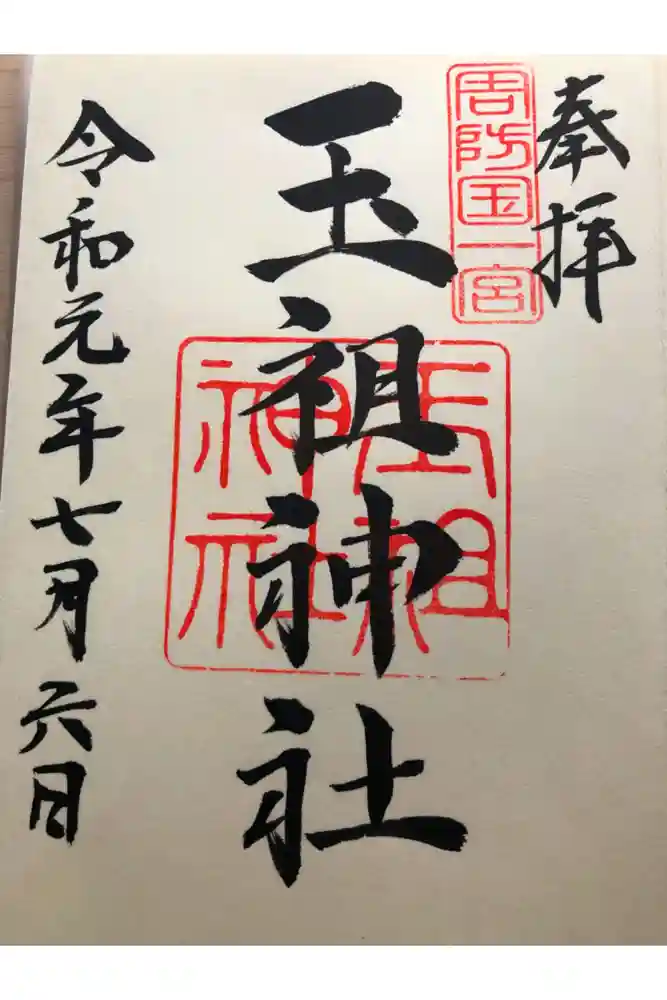 奉拝
周防国一宮
玉祖神社
玉祖神社
令和元年七月六日